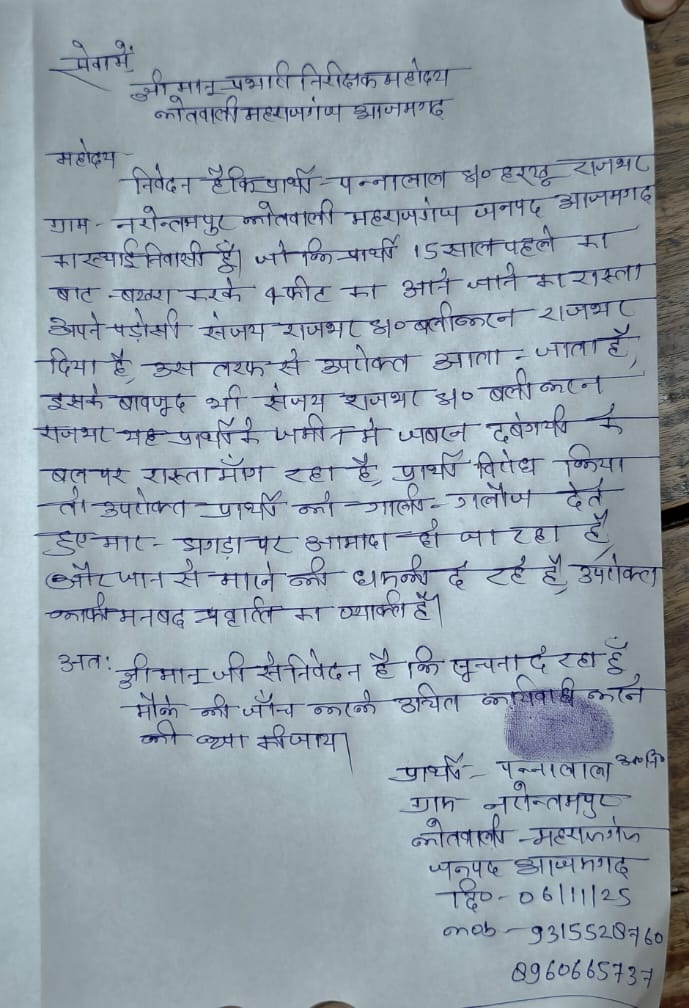 सेवामें
श्रीमान् प्रभारी निरीक्षक महोदय
कोतवाली महराजगंज आजमगढ़
महोदय
निवेदन है कि प्रार्थी - पन्नालाल s/o हरखू राजभर
ग्राम - नरोन्तमपुर कोतवाली महराजगंज जनपद आजमगढ़
का स्थाई निवासी हूँ। जो कि प्रार्थी 15 साल पहले का
बाट - बखरा करके 4 फीट का आने जाने का रास्ता
अपने पड़ोसी संजय राजभर s/o बलीकरन राजभर
दिया है, उस तरफ से उपरोक्त आता - जाता है,
इसके बावजूद भी संजय राजभर s/o बलीकरन
राजभर यह प्रार्थी के जमीन में जबरन दबंगयी के
बल पर रास्ता माँग रहा है, प्रार्थी विरोध किया
तो उपरोक्त प्रार्थी को गाली - गलौज देते
हुए मार - झगड़ा पर आमादा हो जा रहा है,
और जान से मारने की धमकी दे रहे है, उपरोक्त
काफी मनबढ़ प्रवृत्ति का व्यक्ति है।
अतः श्रीमान् जी से निवेदन है कि सूचना दे रहा हूँ
मौके की जाँच करके उचित कार्यवाही करने
की कृपा की जाय।
प्रार्थी - पन्नालाल अ०नि०
ग्राम नरोन्तमपुर
कोतवाली - महराजगंज
जनपद आजमगढ़
दि० - 06/11/25
mob - 9315528760
8960665737